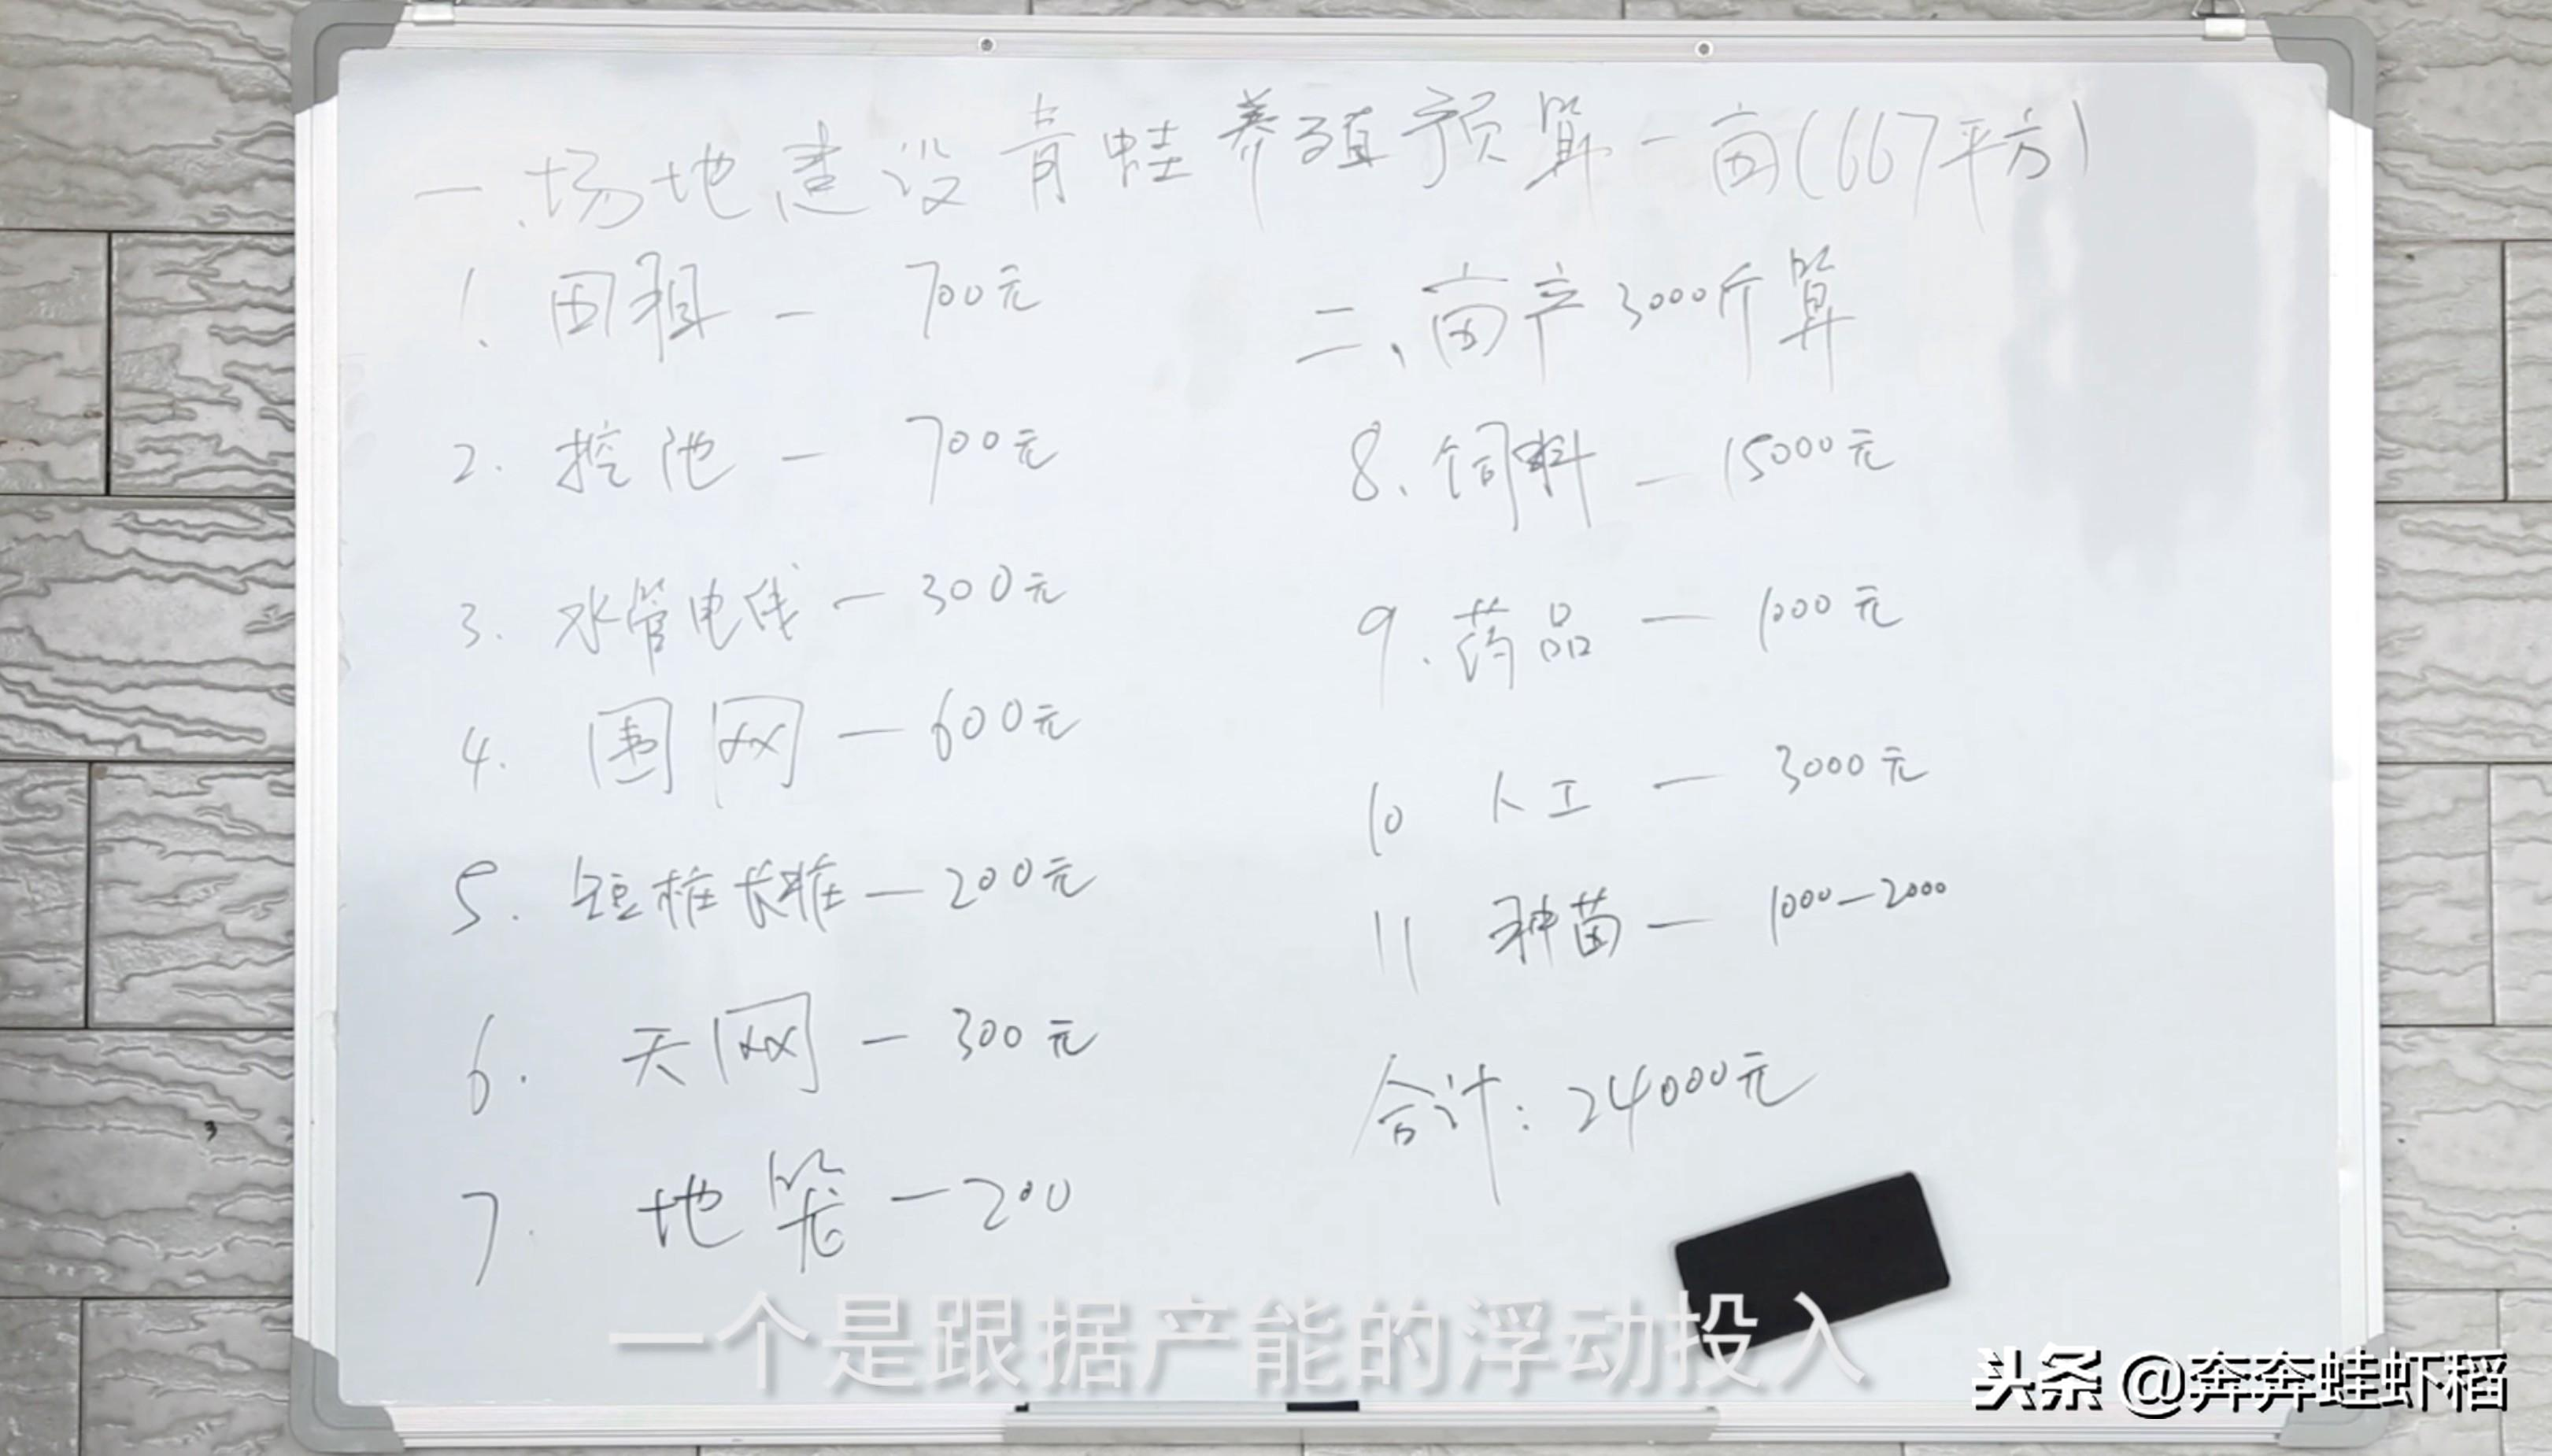 青蛙养殖预算一亩(667平方)
一、场地建设
1. 田租 — 700元
2. 挖池 — 700元
3. 水管电线 — 300元
4. 围网 — 600元
5. 短桩长桩 — 200元
6. 天网 — 300元
7. 地笼 — 200
二、亩产3000斤算
8、饲料 — 15000元
9. 药品 — 1000元
10 人工 — 3000元
11 种苗 — 1000—2000
合计:24000元
一个是跟据产能的浮动投入
头条 @奔奔蛙虾稻